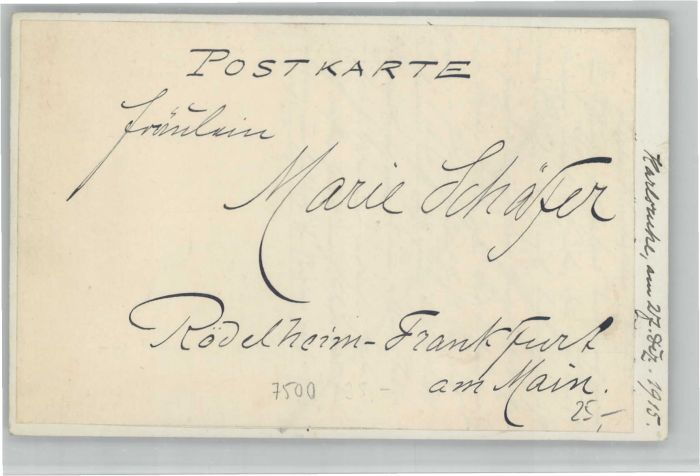 POSTKARTE
Fräulein
Marie Schäfer
Rödelheim-Frankfurt
am Main.
7500 35,-
25,-
Karlsruhe, am 27. Dez. 1915.